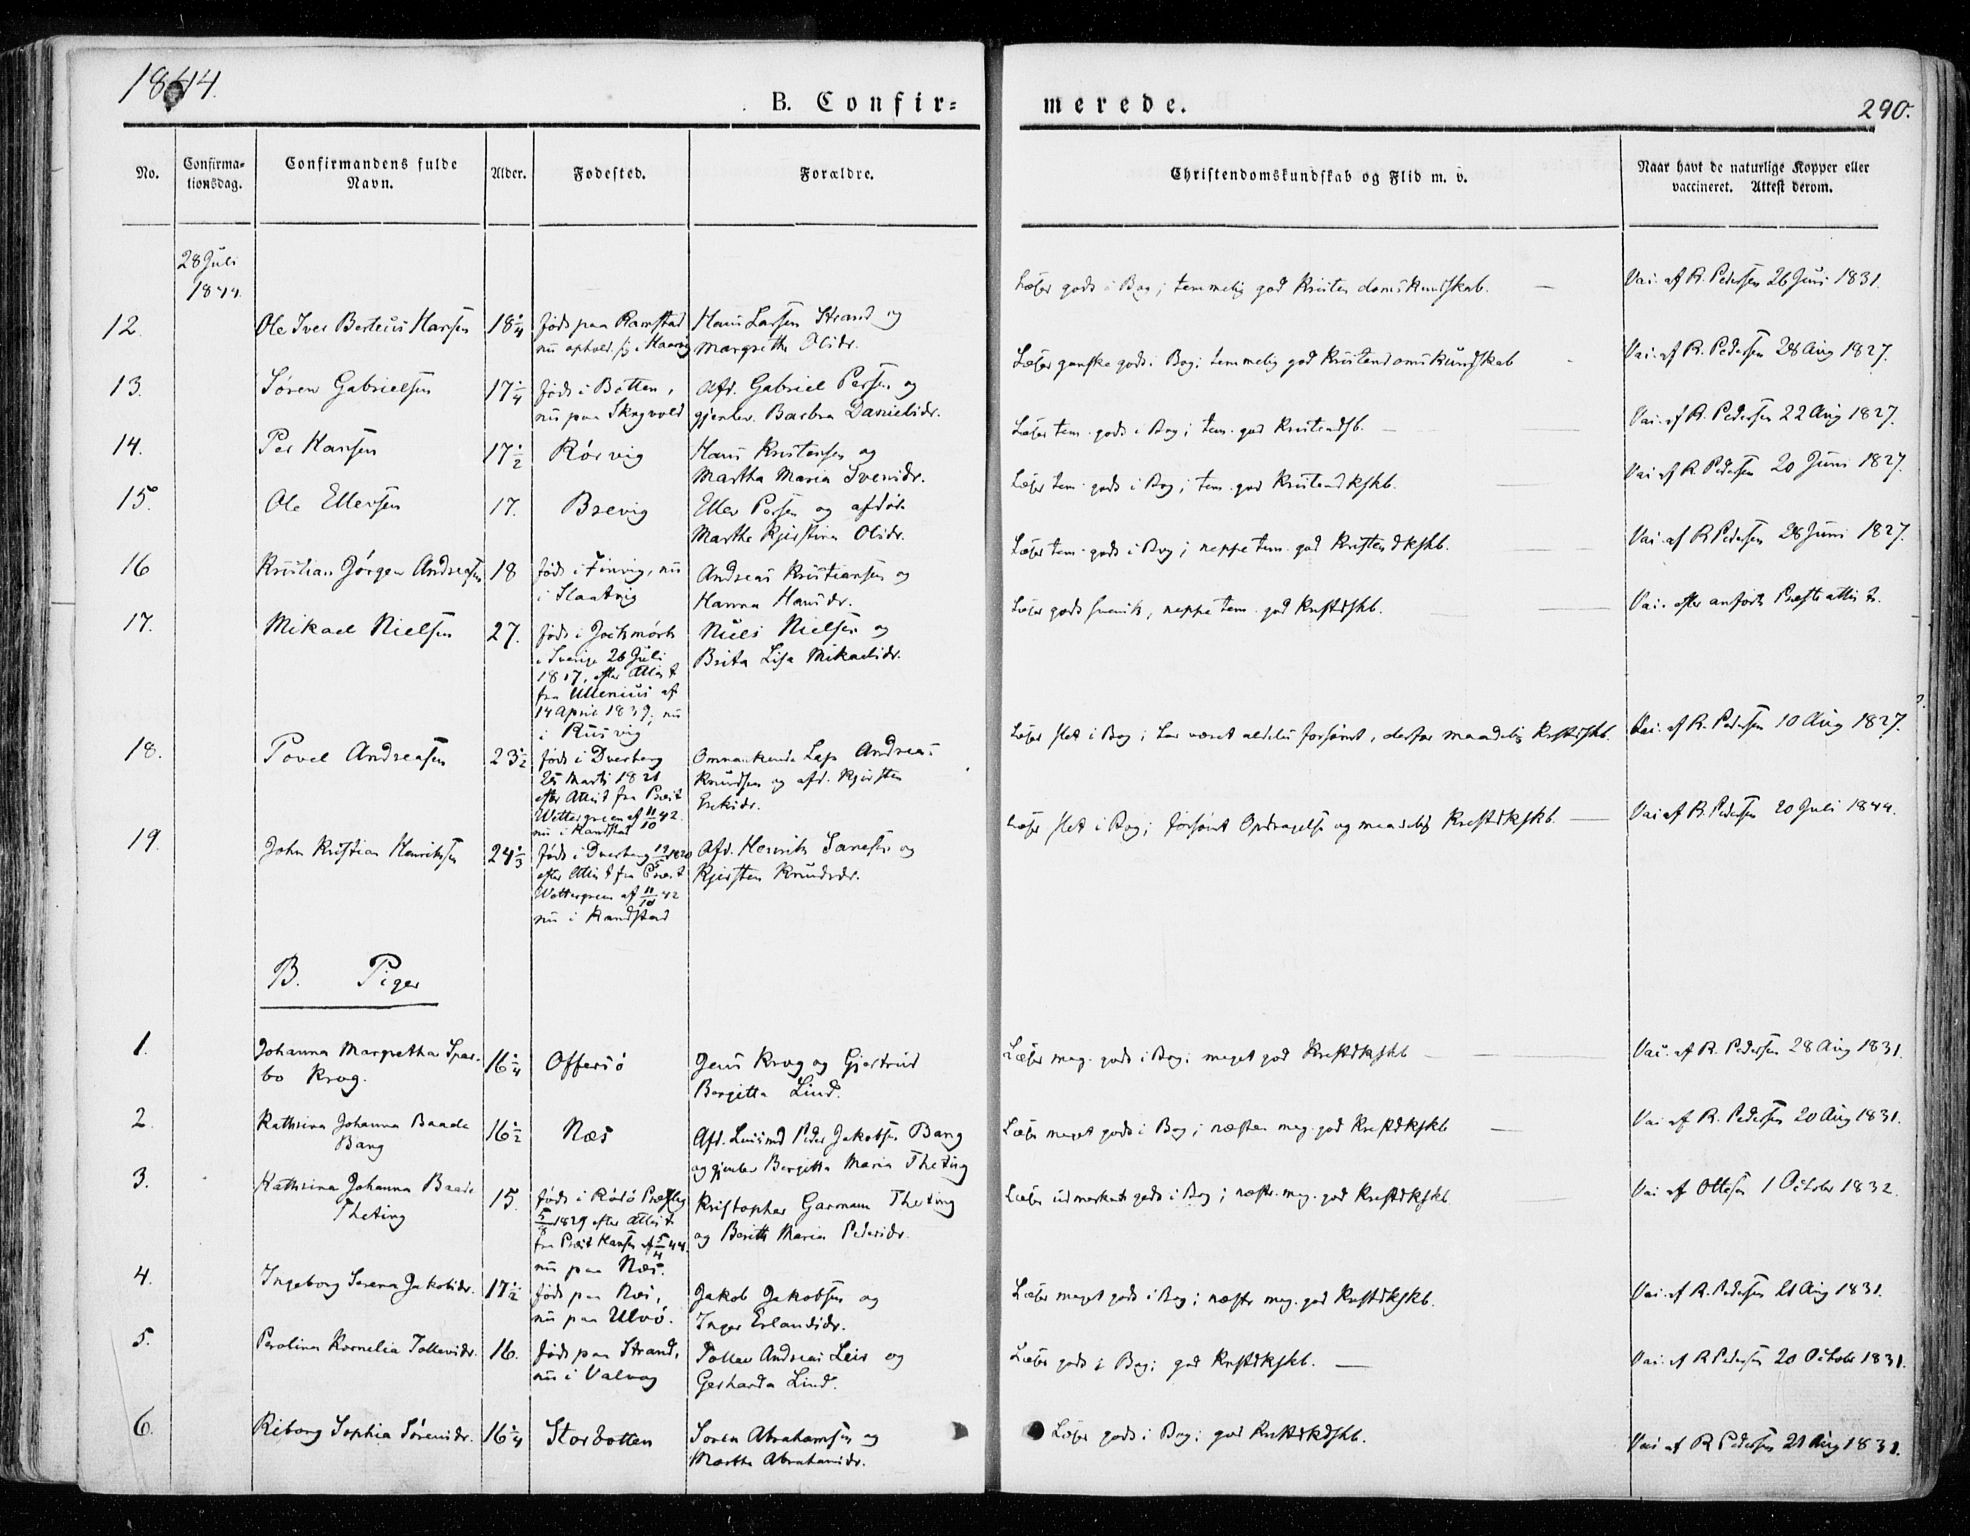 1844.
B. Confir-
merede.
290.
No.
Confirma-
tionsdag.
Confirmandens fulde
Navn.
Alder.
Fødested.
Forældre.
Christendomskundskab og Flid m. v.
Naar havt de naturlige Kopper eller
vaccineret. Attest derom.
28 Juli
1844.
12. Ole Iver Berteus Hansen 18 1/4 født paa Ramstad Hans Larsen Strand og
Margrethe Olsdr.
Læser godt i Bog; temmelig god Kristendomskundskab. Vac. af R. Pedersen 26 Juni 1831.
13. Søren Gabrielsen 17 1/4 født i Botten, Afd. Gabriel Persen og
nu paa Skagvold gjenlev. Barbra Danielsdr.
Læser ganske godt i Bog; temmelig god Kristendomskundskab Vac. af R. Pedersen 28 Aug 1827.
14. Per Hansen 17 1/2 Rørvig Hans Kristensen og
Martha Maria Svensdr.
Læser tem. godt i Bog; tem. god Vac. af R. Pedersen 22 Aug 1827.
15. Ole Ellersen 17. Brevig Eller Persen og afdøde
Marthe Kjerstina Olsdr.
Læser tem. godt i Bog; tem. god Vac. af R. Pedersen 20 Juni 1827.
16 Kristian Jørgen Andreasen 18 født i Finvig, nu Andreas Kristiansen og
i Slaatvig Hanna Hansdr.
Læser tem. godt i Bog; neppe tem. god Vac. af R Pedersen 28 Juni 1827.
17. Mikael Nielsen 27. født i Jockmock Niels Nielsen og
i Sverige 26 Juli Brita Lisa Mikaelsdr.
1817, efter Attest
fra Ullenius af
14 April 1839; nu
i Rusvig
Læser godt svensk, neppe tem. god Vac. efter anførte Præsteattest.
18. Povel Andreasen 23 1/2 født i Dverberg Omvankende Lap Andreas
25 Marts 1821 Knudsen og afd. Kjersten
efter Attest fra Præst
Wettergreen af 11/10 42
nu i Kandstad
Læser slet i Bog; har været aldeles forsømt, derfor maadelig Vac. af R. Pedersen 10 Aug 1827.
19. John Kristian Henriksen 24 1/3 født i Dverberg 1820 Afd. Henrik Larsen og
efter Attest fra Præst Kjersten Knudsdr.
Wettergreen af 11/10 42
nu i Kandstad
Læser slet i Bog; forsømt Opdragelse og maadelig Vac af R. Pedersen 20 Juli 1844.
B. Piger
1. Johanna Margretha Spar- 16 1/4 Offersø Jens Krog og Gjertrud
bo Krog. Bergitta Lind.
Læser meg. godt i Bog; meget god Vac. af R. Pedersen 28 Aug 1831.
2. Kathrina Johanna Baade 16 1/2 Næs Afd. Peder Jakobsen Bang
Bang og gjenlev Bergitta Maria Theting
Læser meget godt i Bog; næsten meg. god Vac. af R. Pedersen 20 Aug 1831.
3. Kathrina Johanna Baade 15. født i Rødø Kristopher Garmann Theting
Theting 1829 efter Attest og Berith Maria Pedersdr.
fra Præst Hansen af 5/4 44.
nu paa Næs.
Læser udmærket godt i Bog; næst. meg. god Vac af Ottesen 1 October 1832.
4. Ingeborg Serena Jakobsdr. 17 1/2 født paa Næs, Jakob Jakobsen og
nu paa Ulvø. Inger Erlandsdr.
Læser meget godt i Bog; næsten meg. god Vac. af R. Pedersen 21 Aug 1831.
5. Perolina Kornelia Tollevsdr. 16. født paa Strand, Tollev Andreas Leir og
nu i Valvaag Gerharda Lind.
Læser godt i Bog; god Vac. af R Pedersen 20 October 1831.
6. Reborg Sophia Sørensdr. 16 1/4 Storbotten Søren Abrahamsen og
Martha Abrahamsdr.
Læser godt i Bog; god Vac af R Pedersen 21 Aug 1831.